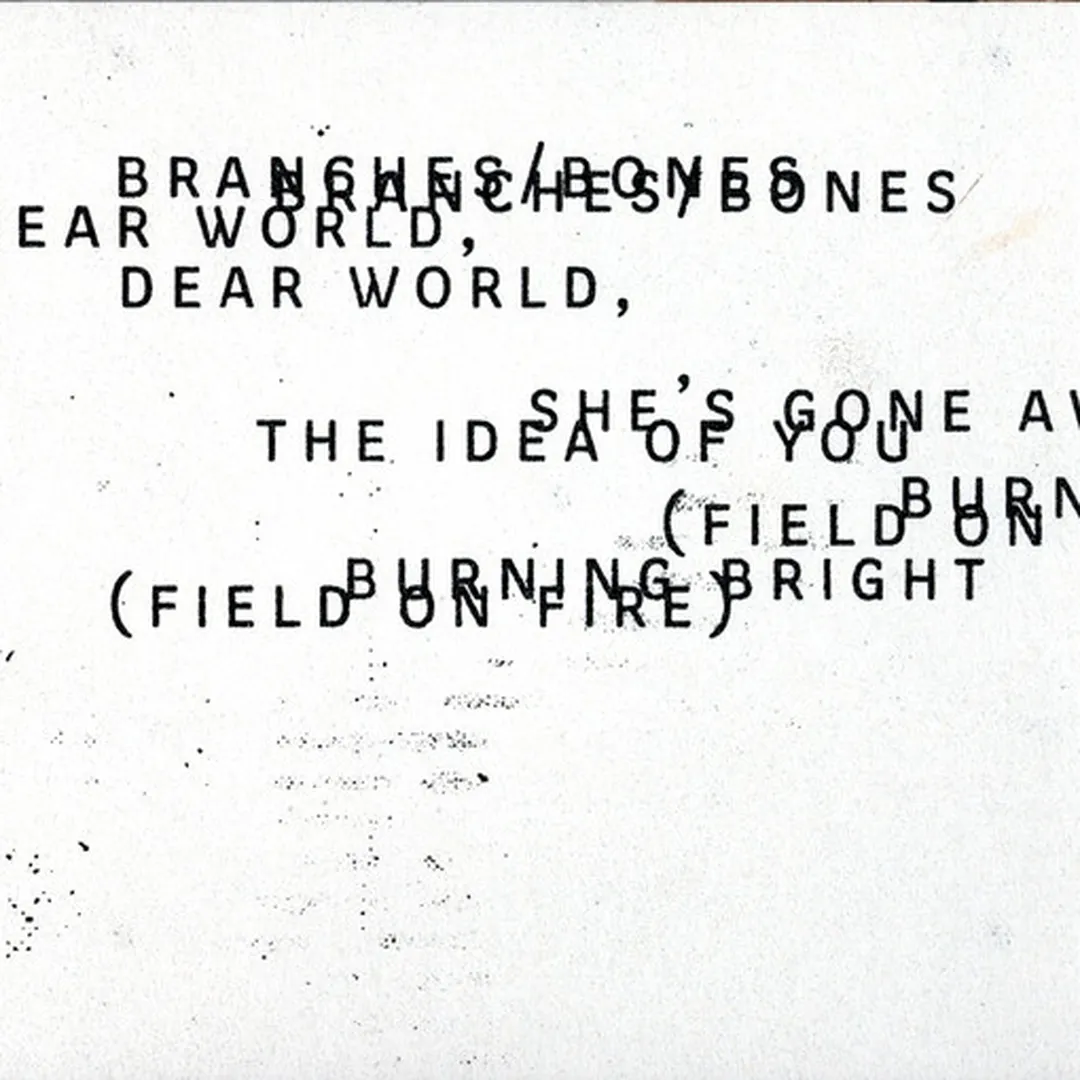 BRANCHES/BONES
BRANCHES/BONES
EAR WORLD,
DEAR WORLD,
SHE'S GONE AW
THE IDEA OF YOU
BURN
(FIELD ON
BURNING BRIGHT
(FIELD ON FIRE)